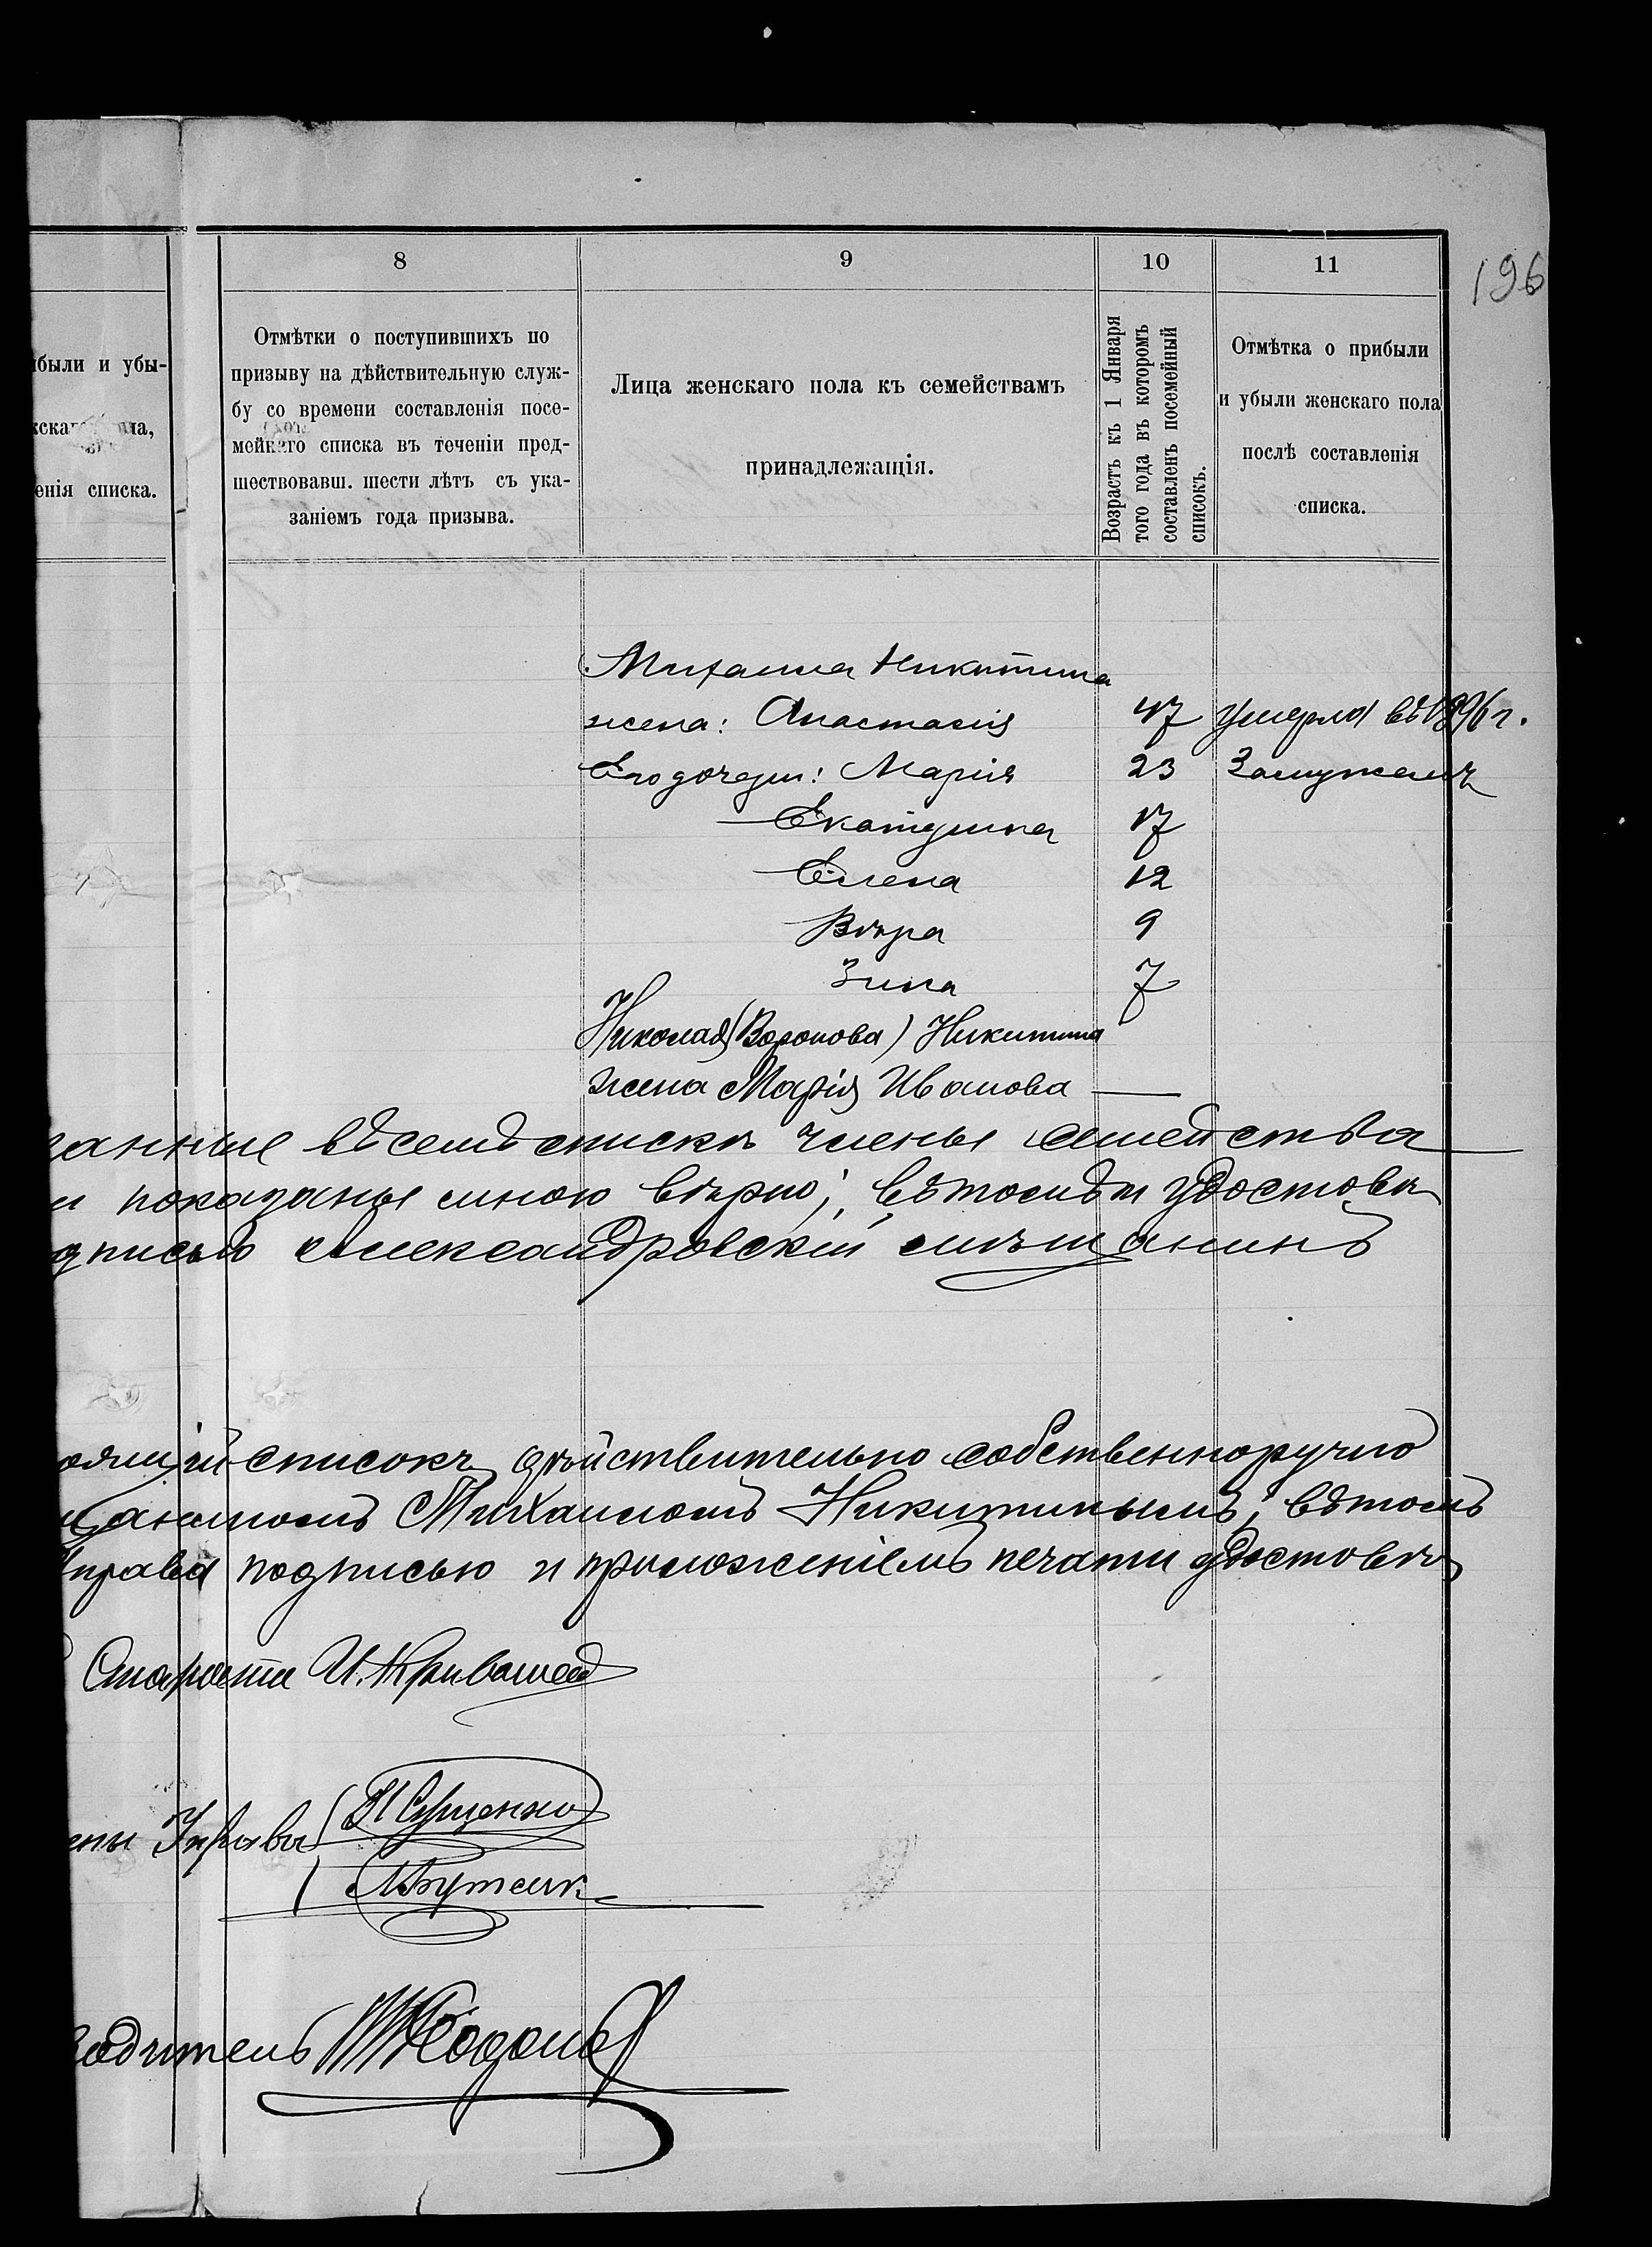 196
8
9
10
11
были и убы-
на,
енія списка.
Отмѣтки о поступившихъ по
призыву на дѣйствительную служ-
бу со времени составленія посе-
мейнаго списка въ теченіи пред-
шествовавш. шести лѣтъ съ ука-
заніемъ года призыва.
Лица женскаго пола къ семействамъ
принадлежащія.
Возрастъ къ 1 Января
того года въ которомъ
составленъ посемейный
списокъ.
Отмѣтка о прибыли
и убыли женскаго пола
послѣ составленія
списка.
Михаила Никитина
жена: Анастасія 47 умерла въ 1896 г.
Его дочери: Марія 23 Замужемъ
Екатерина 17
Елена 12
Вѣра 9
Зина 7
Николая (Воронова) Никитина
жена Марія Иванова —
занные въ семъ спискѣ члены семейства
и показаны мною вѣрно; въ томъ и удостовѣ
дписью Александровскій мѣщанинъ
оящій списокъ дѣйствительно собственноручно
щаниномъ Михаиломъ Никитинымъ; въ томъ
Управа подписью и приложеніемъ печати удостовѣ
Староста И. Кривошея
ены Управы
водитель